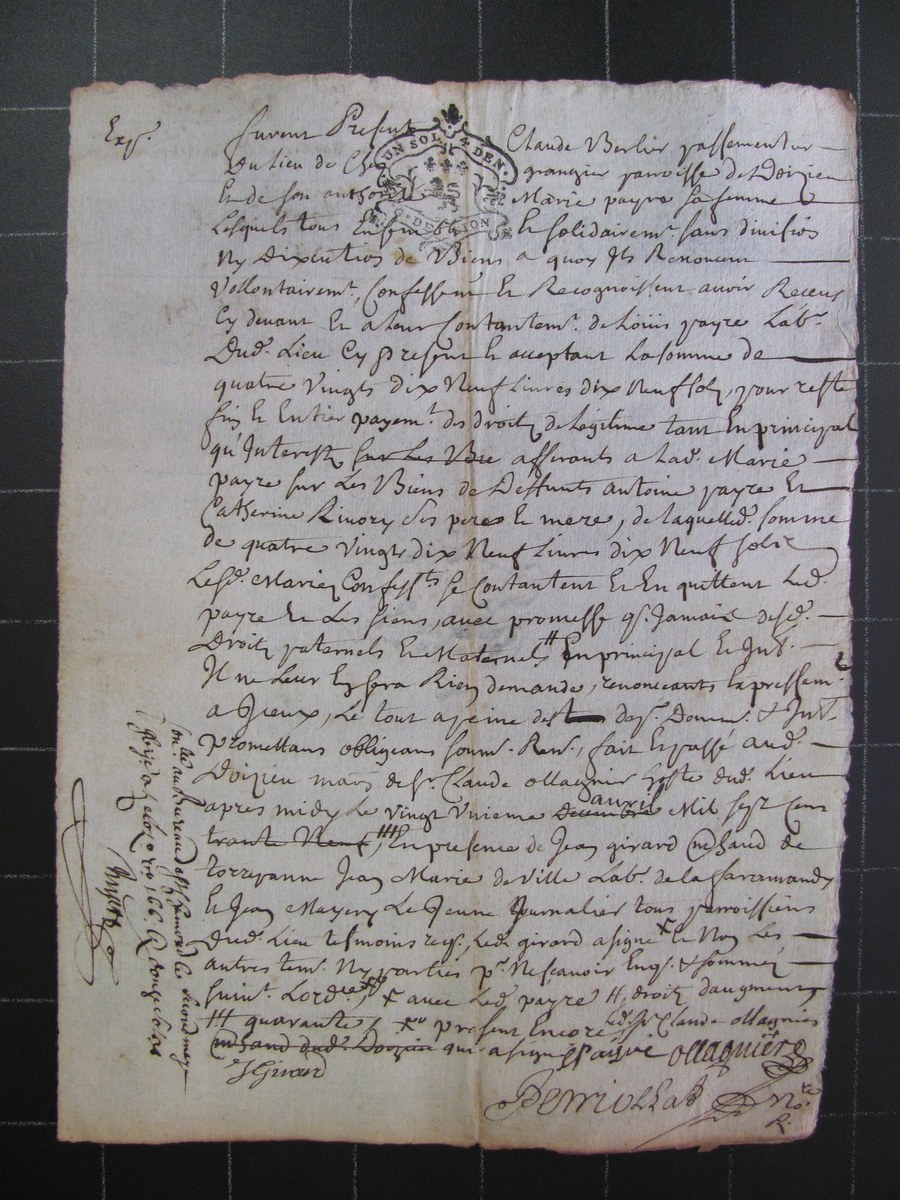 Exp.
furent Presents Claude Berlier passementier
du lieu de granzier parroisse de Doizieu
Et de son authori Marie payre sa femme
Lesquels tous Ensemble Et solidairemt. sans division
Ny Dixcution de Biens a quoy Ils Renoncent
Vollontairemt., Confessent Et Recognoissent auoir Receus
Cy deuant Et a Leur Contantemt. de Loüis payre Labr.
Dud. Lieu Cy present Et acceptant La somme de
quatre vingts dix Neuf Livres dix Neuf sols, pour reste
fin Et Entier payemt. des droits de Légitime tant En principal
qu'Interests sur Les Bie afferants a Lad. Marie
payre sur Les Biens de Deffunts antoine payre Et
Catherine Rivory ses pere Et mere, de Laquelled. somme
de quatre vingts dix Neuf Livres dix Neuf sols
Lesd. Mariez Confessts. se Contantent Et En quittent Led.
payre Et Les siens, avec promesse q. Jamais desd.
Droits paternels Et Maternels H En principal Et Int.
Il ne Leur En sera Rien demandé, renonceants Expressemt.
a Iceux, Le tout a peine de Domm. & Int.
promettans obligeans soum. Ren., fait Et passé aud.
Doizieu mais. de Sr. Claude ollagnier hoste dud. Lieu
apres midy Le vingt Unieme Decembre avril Mil sept Cent
trante Neuf, ttt En presence de Jean girard mchand de
torrepanne Jean Marie de Ville Labr. de la faramandy
Et Jean Mayery Le Jeune Journalier tous parroissiens
Dud. Lieu tesmoins req., Led. girard a signé x Et Non Les
autres tem. Ny parties pr. Ne scavoir Enq. & sommez
suivt. Lord. x avec Led. payre H, droits d'augment
ttt quarante / xx present Encore Led. Sr. Claude ollagnier
mchand dud. Doizieu qui a signé payre ollagnier
J Girard
Perriollat No. R.
Con.lé au bureau de St. Chamond le second may